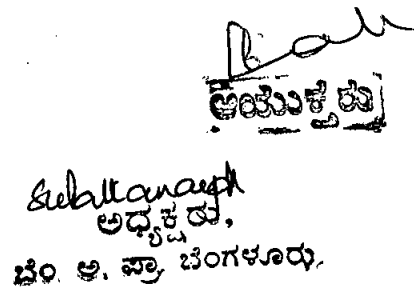 ಆಯುಕ್ತರು
ಅಧ್ಯಕ್ಷರು,
ಬೆಂ. ಅ. ಪ್ರಾ. ಬೆಂಗಳೂರು.